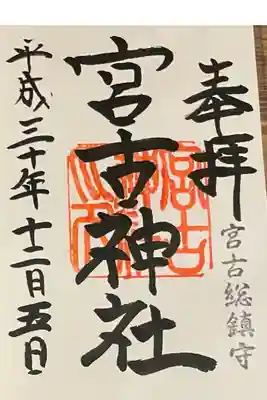 奉拝
宮古総鎮守
宮古神社
平成三十年十二月五日